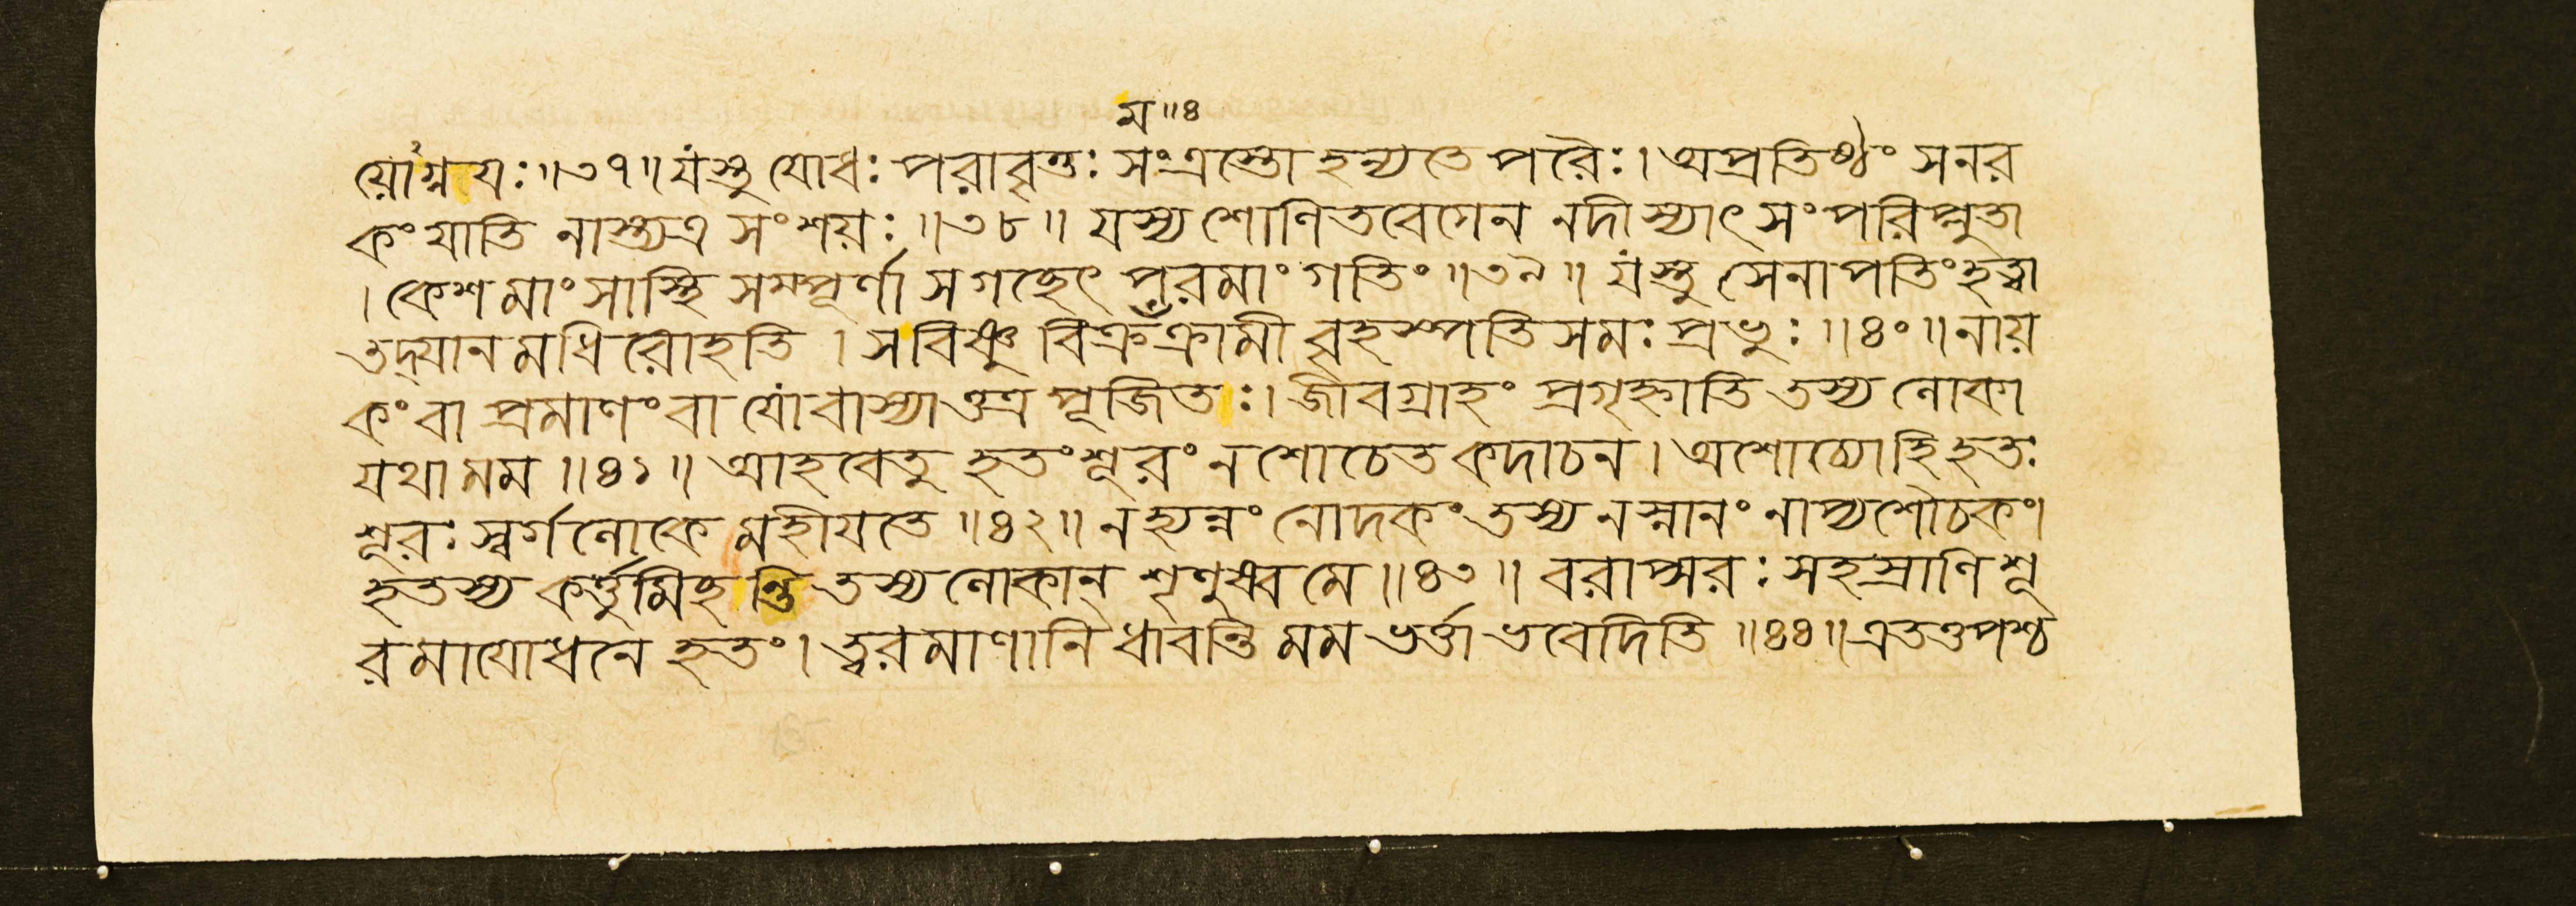 ম॥৪
য়োগ্নয়ঃ॥৩৭॥যস্তু যোধঃ পরাবৃত্তঃ সংত্রস্তো হন্যতে পরৈঃ। অপ্রতিষ্ঠং সনর
কং যাতি নাস্ত্যত্র সংশয়ঃ॥৩৮॥ যস্য শোণিতবেগেন নদীস্যাৎ সংপরিপ্লুতা
। কেশমাংসাস্থি সম্পূর্ণা সগচ্ছেৎ পরমাং গতিং॥৩৯॥ যস্তু সেনাপতিং হত্বা
তদ্যানমধিরোহতি । সবিষ্ণু বিক্রঁক্রামী বৃহস্পতিসমঃ প্রভুঃ॥৪০॥নায়
কং বা প্রমাণং বা যোবাস্যাত্তত্র পূজিতঃ। জীবগ্রাহং প্রগৃহ্নাতি তস্য লোকা
যথা মম॥৪১॥ আহবেতু হতং শূরং ন শোচেত কদাচন। অশোচ্যোহি হতঃ
শূরঃ স্বর্গলোকে মহীযতে॥৪২॥ নহ্যন্নং নোদকং তস্য নস্নানং নাপ্যশৌচকং।
হতস্য কর্ত্তুমিহন্তি তস্য লোকান্ শৃণুষ্ব মে॥৪৩॥ বরাপ্সরঃ সহস্রাণি শূ
রমাযোধনে হতং। ত্বরমাণানি ধাবন্তি মম ভর্ত্তা ভবেদিতি॥৪৪॥এতত্তপশ্চ